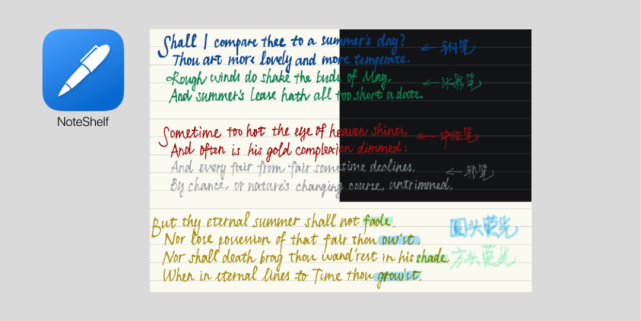 NoteShelf
Shall I compare thee to a summer's day? ← 钢笔
Thou art more lovely and more temperate.
Rough winds do shake the buds of May, ←
And summer's lease hath all too short a date.
Sometime too hot the eye of heaven shines, ← 中性笔
And often is his gold complexion dimmed:
And every fair from fair sometime declines, ← 铅笔
By chance, or nature's changing course, untrimmed.
But thy eternal summer shall not fade, 圆头荧光
Nor lose possession of that fair thou ow'st.
Nor shall death brag thou wand'rest in his shade 方头荧光
When in eternal lines to Time thou grow'st.